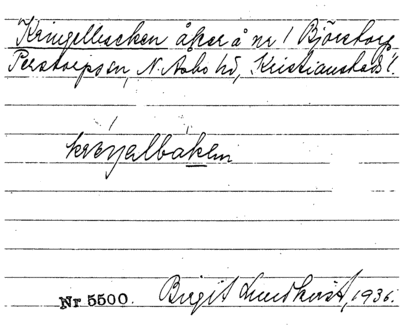 Kringelbacken åker å nr 1 Björstorp
Perstorps sn, N. Åsbo hd, Kristianstads l.
kriŋəlbakən
Nr 5500. Birgit Lundkvist, 1936.